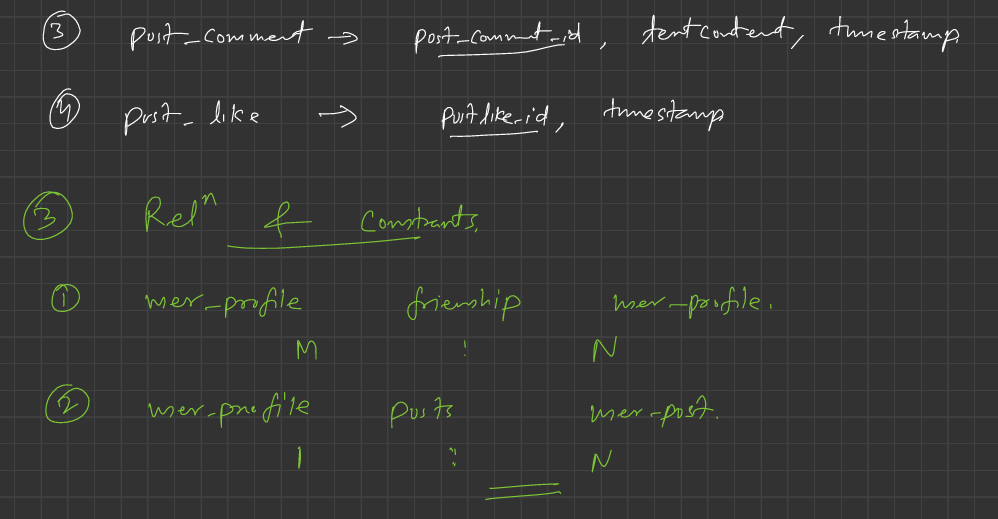 ③ post_comment → post_comment_id, textcontent, timestamp
④ post_like → postlike_id, timestamp
③ Relⁿ & Constraints.
① user_profile frienship user_profile.
M : N
② user_profile posts user_post.
1 : N